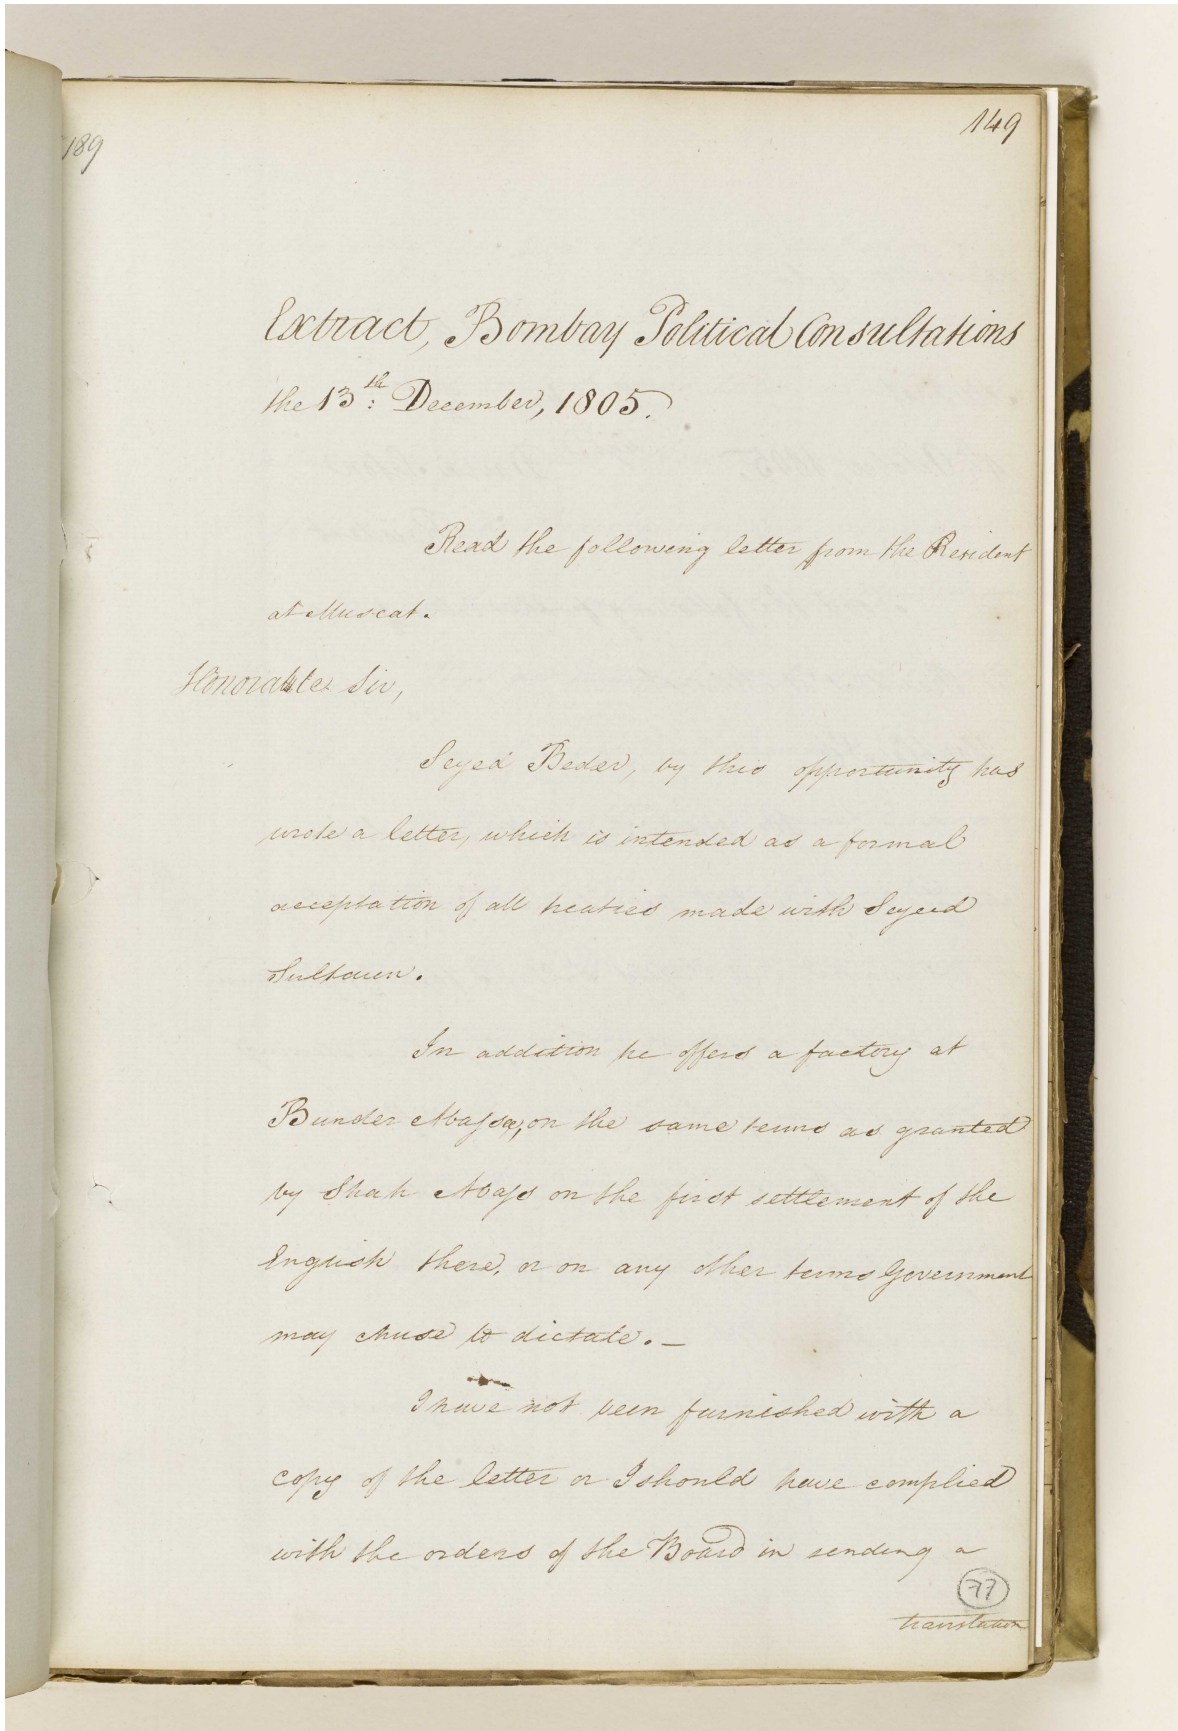 189
149
Extract, Bombay Political Consultations
the 13th: December, 1805.
Read the following letter from the Resident
at Muscat.
Honorable Sir,
Seyed Beder, by this opportunity has
wrote a letter, which is intended as a formal
acceptation of all treaties made with Seyed
Sultaun.
In addition he offers a factory at
Bunder Abassee, on the same terms as granted
by Shah Abass on the first settlement of the
English there, or on any other terms Government
may chuse to dictate. —
I have not been furnished with a
copy of the letter or I should have complied
with the orders of the Board in sending a
77
translation